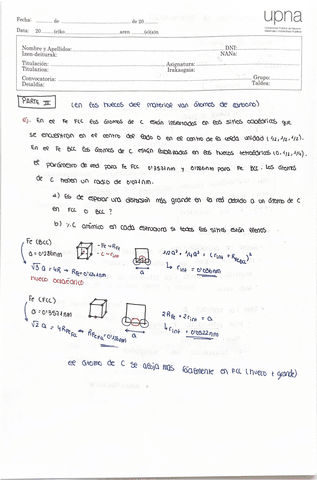 upna
Fecha: de de 20
Data: 20 (e)ko aren (e)a(n)
Nombre y Apellidos: DNI:
Izen-deiturak: NANa:
Titulación: Asignatura:
Titulazioa: Irakasgaia:
Convocatoria: Grupo:
Deialdia: Taldea:
PARTE II (en los huecos del material van átomos de carbono)
En el Fe FCC los átomos de C están insertados en los sitios octaédricos que
se encuentran en el centro del lado o en el centro de la celda unidad (1/2, 1/2, 1/2).
En el Fe BCC los átomos de C están localizados en los huecos tetraédricos (0, 1/2, 1/4).
El parámetro de red para Fe FCC 0'3571nm y 0'2866nm para Fe BCC. Los átomos
de C tienen un radio de 0'071nm.
a) Es de esperar una distorsión más grande en la red debido a un átomo de C
en FCC o BCC?
b) % C atómico en cada estructura si todos los sitios están llenos.
Fe (BCC)
a = 0'2866nm
√3 a = 4R → R
hueco octaédrico
- Fe → RFe
- C → rint
a
Fe (FCC)
a = 0'3571nm
√2 a = 4R
a
2RFe + 2rint = a
↳ rint = 0'0522nm
el átomo de C se aloja más fácilmente en FCC (hueco + grande)